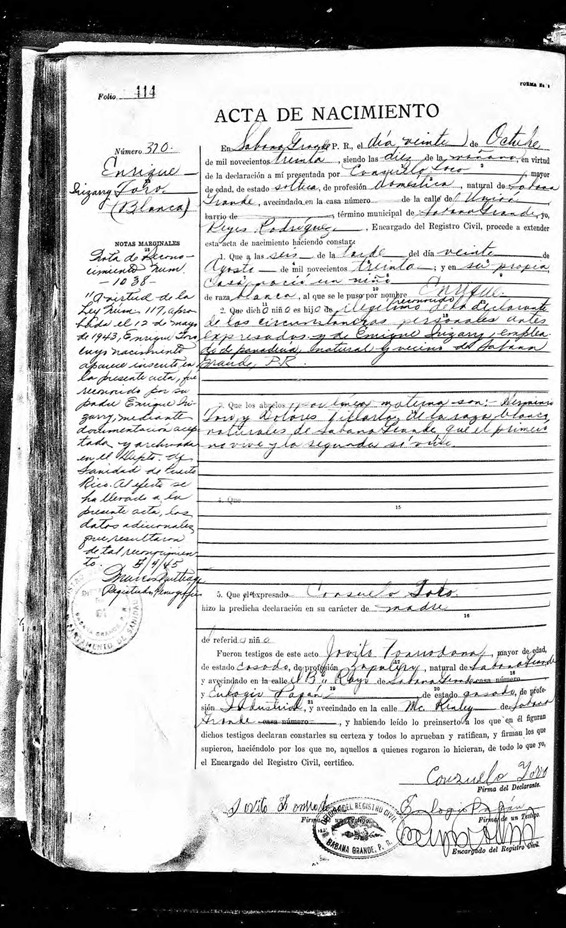 FORMA No. 1
Folio 114
ACTA DE NACIMIENTO
Número 370.
Enrique
Irizarry Toro
(Blanca)
NOTAS MARGINALES
Nota de recono-
cimiento Num.
-1038-
"A virtud de la
Ley Num. 117, apro-
bada el 12 de mayo
de 1943, Enrique Toro
cuyo nacimiento
aparece inscrito en
la presente acta, fue
reconocido por su
padre Enrique Iri-
zarry, mediante
documentación acep-
tada y archivada
en el Depto. de
Sanidad de Puerto
Rico. Al efecto se
ha llevado a la
presente acta, los
datos adicionales
que resultaron
de tal reconocimien-
to.
Registrador Demográfico
En Sabana Grande P. R., el día veinte de Octubre
de mil novecientos treinta, siendo las diez de la mañana, en virtud
de la declaración a mí presentada por Consuelo Toro, mayor
de edad, de estado soltera, de profesión doméstica, natural de Sabana
Grande, avecindada en casa número de la calle del Unión
barrio de término municipal de Sabana Grande, yo,
Reyes Rodríguez, Encargado del Registro Civil, procede a extender
esta acta de nacimiento haciendo constar:
1. Que a las seis de la tarde del día veinte de
Agosto de mil novecientos treinta; y en su propia
casa nació un niño
de raza blanca, al que se puso por nombre Enrique
reconocido
2. Que dicho niño es hijo de ilegítimo de la declarante
de las circunstancias personales antes
expresadas y de Enrique Irizarry, emplea-
do de panadería, natural y vecino de Sabana
Grande, P.R.
3. Que los abuelos por línea materna son: Herminio
Toro y Dolores Villarla, de la raza blanca
naturales de Sabana Grande que el primero
no vive y la segunda sí vive.
4. Que
15
5. Que el expresado Consuelo Toro
hizo la predicha declaración en su carácter de madre
16
de referido niño
Fueron testigos de este acto Jovito, mayor de edad,
de estado casado, de profesión zapatero, natural de Sabana Grande
y avecindado en la calle de Sabana Grande casa número
y Eulogio Pagán de estado casado, de profe-
sión Industrial, y avecindado en la calle Mc. Kinley de Sabana
Grande casa número, y habiendo leído lo preinserto a los que en él figuran
dichos testigos declaran constarles su certeza y todos lo aprueban y ratifican, y firman los que
supieron, haciéndolo por los que no, aquellos a quienes rogaron lo hicieran, de todo lo que yo,
el Encargado del Registro Civil, certifico.
Consuelo Toro
Firma del Declarante.
Eulogio Pagán
Firma de un Testigo.
Encargado del Registro Civil.
DEL REGISTRO CIVIL
SABANA GRANDE, P. R.